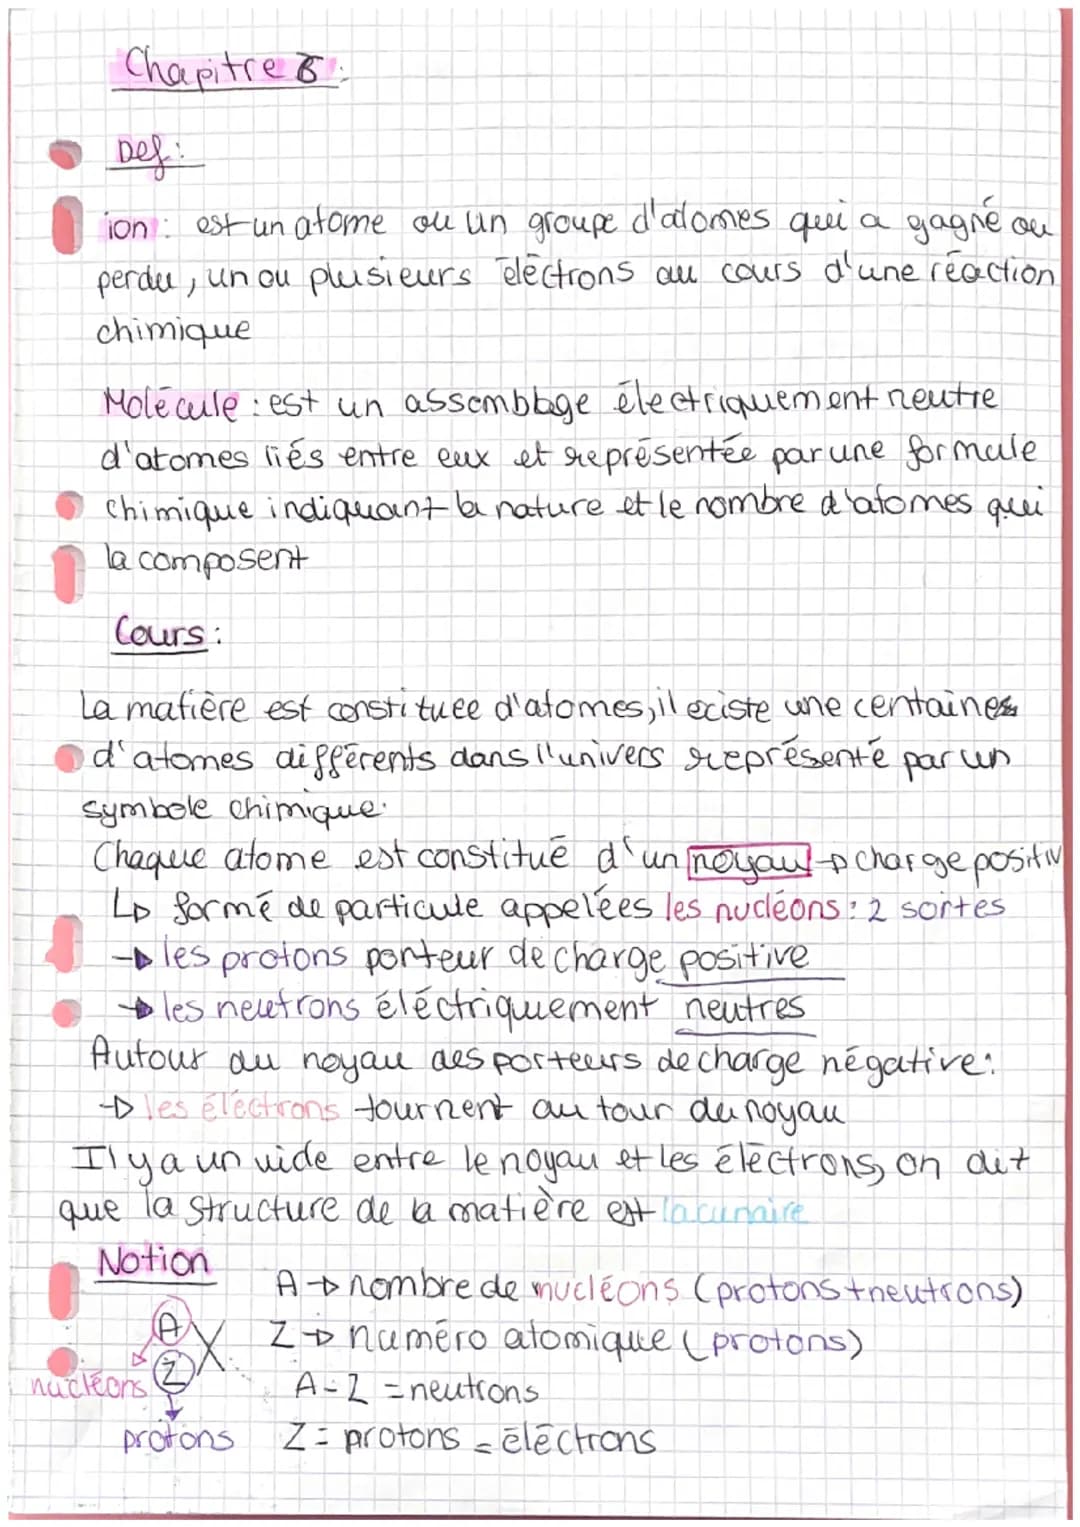 Chapitre 6 :
Def :
ion : est un atome ou un groupe d'atomes qui a gagné ou
perdu, un ou plusieurs électrons au cours d'une réaction
chimique
Molécule : est un assemblage électriquement neutre
d'atomes liés entre eux et représentée par une formule
chimique indiquant la nature et le nombre d'atomes qui
la composent
Cours :
La matière est constituée d'atomes, il eciste une centaines
d'atomes différents dans l'univers représenté par un
symbole chimique.
Chaque atome est constitué d'un noyau → charge positiv
↳ formé de particule appelées les nucléons : 2 sortes
→ les protons porteur de charge positive
→ les neutrons éléctriquement neutres
Autour du noyau des porteurs de charge négative :
→ les électrons tournent au tour du noyau
Il y a un vide entre le noyau et les électrons, on dit
que la structure de la matière est lacunaire
Notion
A → nombre de nucléons (protons + neutrons)
A X Z → numéro atomique (protons)
nucléons Z A - Z = neutrons
protons Z = protons = électrons